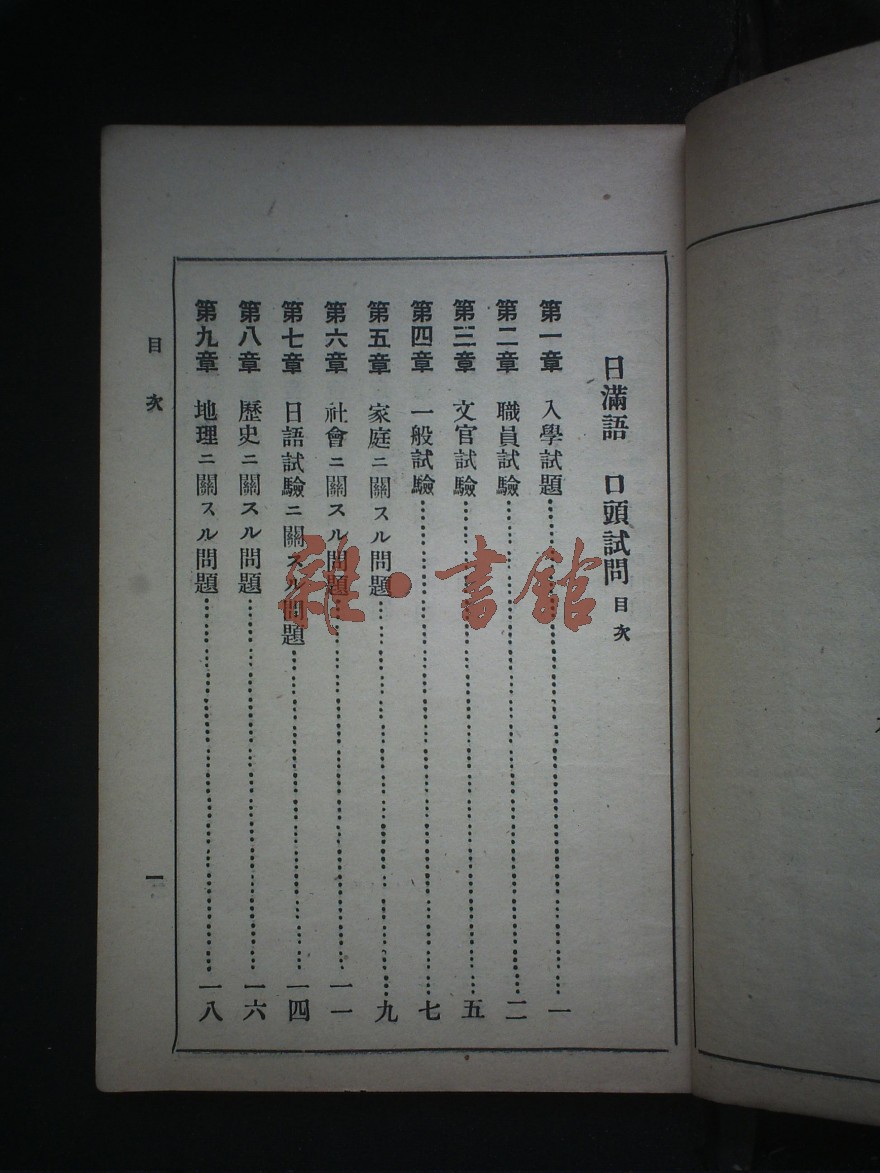 日滿語 口頭試問 目次
第一章 入學試題……一
第二章 職員試驗……二
第三章 文官試驗……五
第四章 一般試驗……七
第五章 家庭ニ關スル問題……九
第六章 社會ニ關スル問題……一一
第七章 日語試驗ニ關スル問題……一四
第八章 歷史ニ關スル問題……一六
第九章 地理ニ關スル問題……一八
目次
一
雜·書館